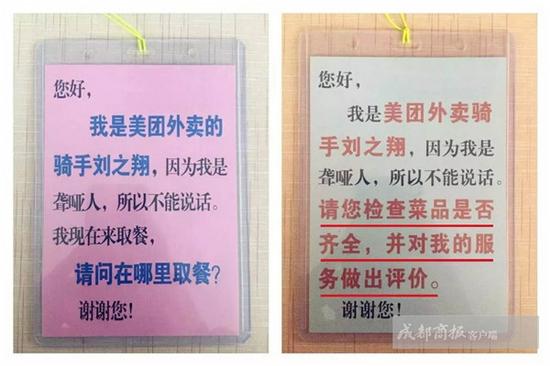 您好，
我是美团外卖的
骑手刘之翔，因为我是
聋哑人，所以不能说话。
我现在来取餐，
请问在哪里取餐？
谢谢您！
您好，
我是美团外卖骑
手刘之翔，因为我是
聋哑人，所以不能说话。
请您检查菜品是否
齐全，并对我的服
务做出评价。
谢谢您！
成都商报客户端